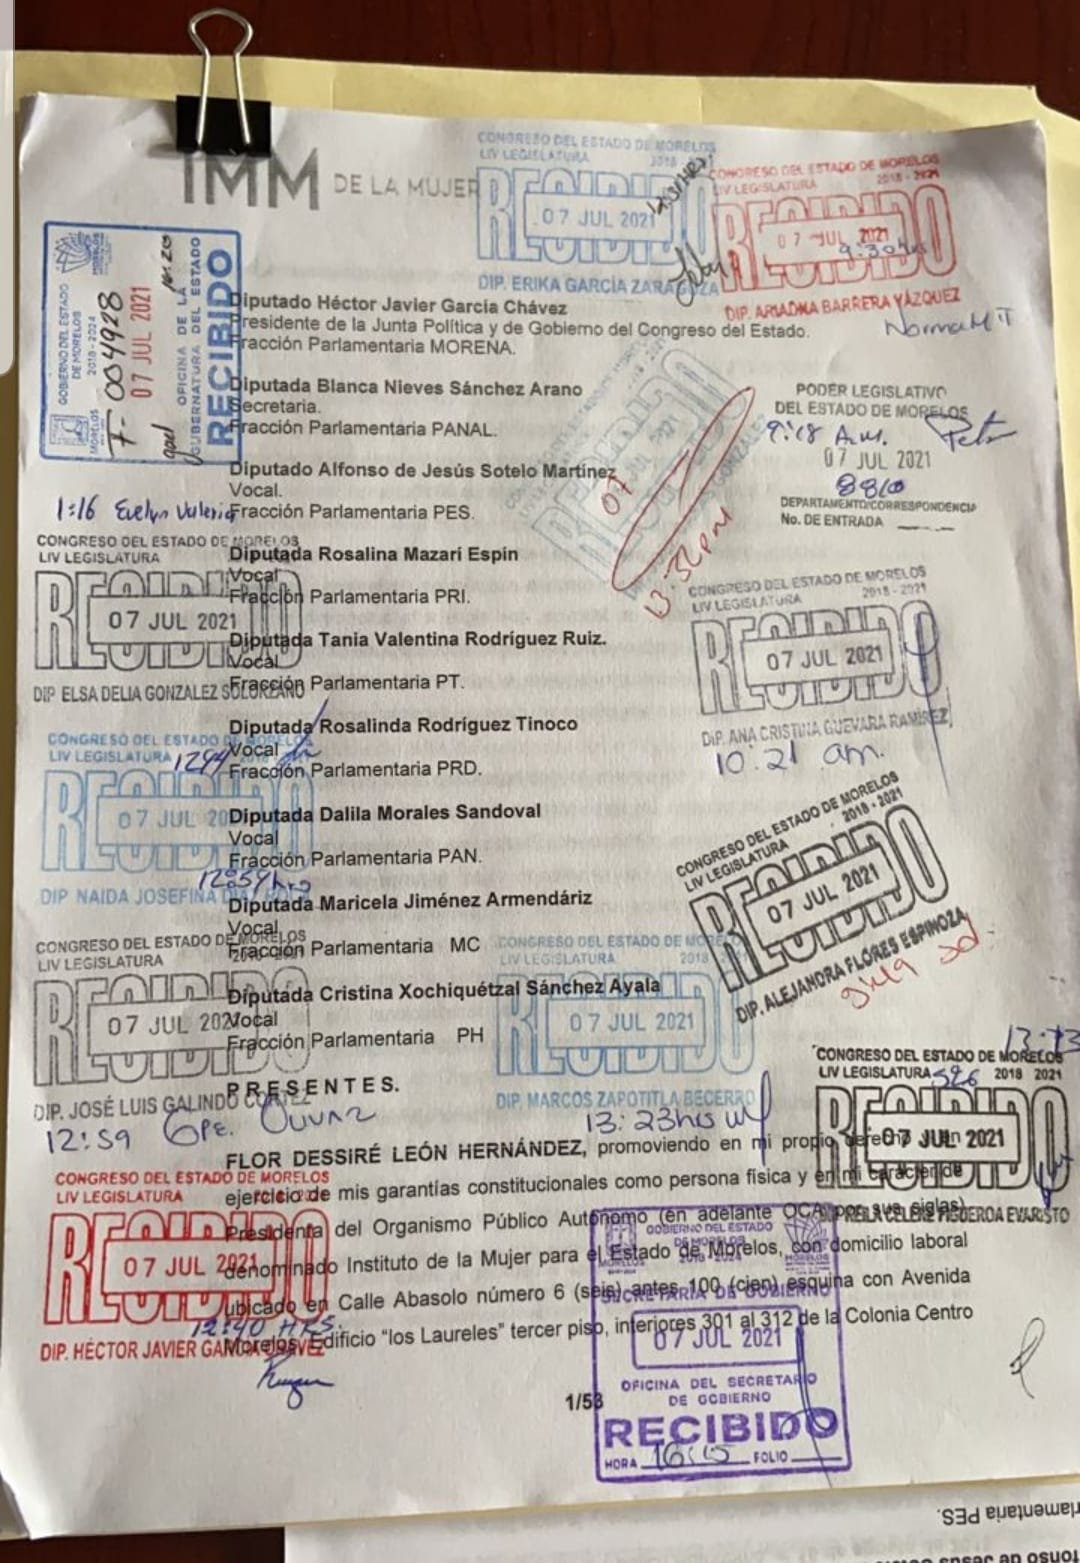 IMM DE LA MUJER
CONGRESO DEL ESTADO DE MORELOS
LIV LEGISLATURA 2018
RECIBIDO
07 JUL 2021
DIP. ERIKA GARCÍA ZARAGOZA
CONGRESO DEL ESTADO DE MORELOS
LIV LEGISLATURA 2018 - 2021
RECIBIDO
07 JUL 2021
9:30 hrs
DIP. ARIADNA BARRERA VÁZQUEZ
Norma M T
GOBIERNO DEL ESTADO
DE MORELOS
2018 - 2024
MORELOS
7-004928
07 JUL 2021
OFICINA DE LA
GUBERNATURA DEL ESTADO
RECIBIDO
Diputado Héctor Javier García Chávez
Presidente de la Junta Política y de Gobierno del Congreso del Estado.
Fracción Parlamentaria MORENA.
Diputada Blanca Nieves Sánchez Arano
Secretaria.
Fracción Parlamentaria PANAL.
PODER LEGISLATIVO
DEL ESTADO DE MORELOS
9:18 A.M.
07 JUL 2021
8810
DEPARTAMENTO/CORRESPONDENCIA
No. DE ENTRADA
Diputado Alfonso de Jesús Sotelo Martínez
Vocal.
Fracción Parlamentaria PES.
07
13:32pm
1:16 Evelyn Valeria
CONGRESO DEL ESTADO DE MORELOS
LIV LEGISLATURA
RECIBIDO
07 JUL 2021
DIP ELSA DELIA GONZALEZ SOLORZANO
Diputada Rosalina Mazari Espín
Vocal
Fracción Parlamentaria PRI.
Diputada Tania Valentina Rodríguez Ruiz.
Vocal
Fracción Parlamentaria PT.
CONGRESO DEL ESTADO DE MORELOS
LIV LEGISLATURA 2018 - 2021
RECIBIDO
07 JUL 2021
DIP. ANA CRISTINA GUEVARA RAMIREZ
10:21 am.
Diputada Rosalinda Rodríguez Tinoco
Vocal
Fracción Parlamentaria PRD.
CONGRESO DEL ESTADO DE MORELOS
LIV LEGISLATURA
RECIBIDO
07 JUL 20
12:59hrs
DIP NAIDA JOSEFINA
Diputada Dalila Morales Sandoval
Vocal
Fracción Parlamentaria PAN.
CONGRESO DEL ESTADO DE MORELOS
LIV LEGISLATURA 2018 - 2021
RECIBIDO
07 JUL 2021
DIP. ALEJANDRA FLORES ESPINOZA
Diputada Maricela Jiménez Armendáriz
Vocal
Fracción Parlamentaria MC
CONGRESO DEL ESTADO DE MORELOS
LIV LEGISLATURA
RECIBIDO
07 JUL 202
DIP. JOSÉ LUIS GALINDO CORTEZ
12:59 GPE.
Diputada Cristina Xochiquétzal Sánchez Ayala
Vocal
Fracción Parlamentaria PH
CONGRESO DEL ESTADO DE MORELOS
LIV LEGISLATURA 2018 2021
RECIBIDO
07 JUL 2021
DIP. MARCOS ZAPOTITLA BECERRO
13:23hrs
13:13
CONGRESO DEL ESTADO DE MORELOS
LIV LEGISLATURA 2018 2021
RECIBIDO
07 JUL 2021
FIGUEROA EVARISTO
PRESENTES.
FLOR DESSIRÉ LEÓN HERNÁNDEZ, promoviendo en mi propio derecho, en
ejercicio de mis garantías constitucionales como persona física y en mi carácter de
Presidenta del Organismo Público Autónomo (en adelante OCA por sus siglas)
denominado Instituto de la Mujer para el Estado de Morelos, con domicilio laboral
ubicado en Calle Abasolo número 6 (seis) antes 100 (cien) esquina con Avenida
Morelos, Edificio “los Laureles” tercer piso, interiores 301 al 312 de la Colonia Centro
CONGRESO DEL ESTADO DE MORELOS
LIV LEGISLATURA
RECIBIDO
07 JUL 2021
12:40 HRS.
DIP. HÉCTOR JAVIER GARCÍA CHÁVEZ
GOBIERNO DEL ESTADO
DE MORELOS
2018 - 2024
SECRETARÍA DE GOBIERNO
07 JUL 2021
OFICINA DEL SECRETARIO
DE GOBIERNO
RECIBIDO
HORA 16:15 FOLIO
1/53
lamentaria PES.